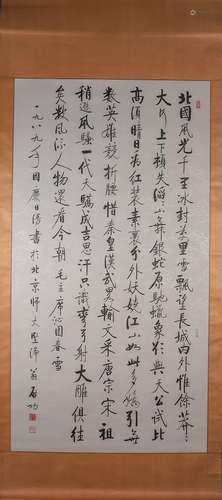 北國風光千里冰封萬里雪飄望長城内外惟餘莽〻
大河上下頓失滔〻山舞銀蛇原馳蠟象欲與天公試比
高須晴日看紅裝素裹分外妖嬈江山如此多嬌引無
數英雄競折腰惜秦皇漢武略輸文采唐宗宋祖
稍遜風騷一代天驕成吉思汗只識彎弓射大雕俱往
矣數風流人物還看今朝 毛主席沁園春雪
一九八九年國慶日後書於北京師大堅淨翁启功